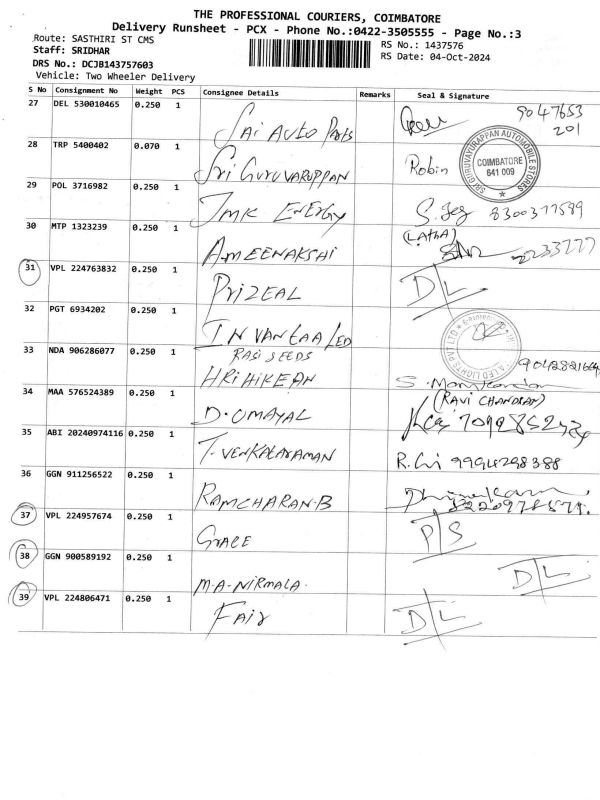 THE PROFESSIONAL COURIERS, COIMBATORE
Delivery Runsheet - PCX - Phone No.:0422-3505555 - Page No.:3
Route: SASTHIRI ST CMS
RS No.: 1437576
Staff: SRIDHAR
RS Date: 04-Oct-2024
DRS No.: DCJB143757603
Vehicle: Two Wheeler Delivery
S No Consignment No Weight PCS Consignee Details Remarks Seal & Signature
27 DEL 530010465 0.250 1 Sai Auto Parts 9047653
201
28 TRP 5400402 0.070 1 Sri Guruvaruppan Robin
SRI GURUVAYURAPPAN AUTOMOBILE STORES
COIMBATORE
641 009
29 POL 3716982 0.250 1 JMK ENERGY 8300377589
30 MTP 1323239 0.250 1 AMEENAKSHI (LATHA) 2233777
31 VPL 224763832 0.250 1 PRIZEAL D/L
32 PGT 6934202 0.250 1 LED
33 NDA 906286077 0.250 1 RASI SEEDS
HRIHIKEAN
34 MAA 576524389 0.250 1 D. OMAYAL (RAVI CHANDRAN)
35 ABI 20240974116 0.250 1 T. VENKATARAMAN 9994298388
36 GGN 911256522 0.250 1 RAMCHARAN-B
37 VPL 224957674 0.250 1 GRACE P/S
38 GGN 900589192 0.250 1 M-A-NIRMALA. D/L
39 VPL 224806471 0.250 1 Fair D/L